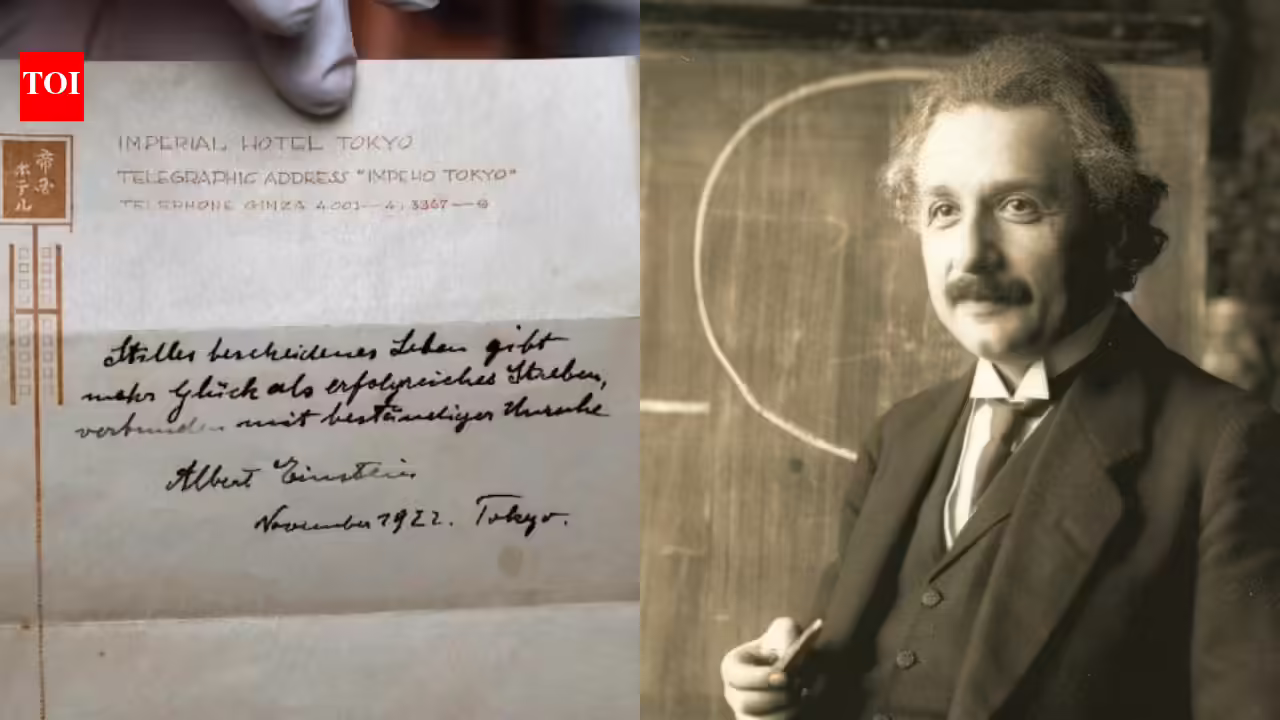 TOI
帝国
ホテル
IMPERIAL HOTEL TOKYO
TELEGRAPHIC ADDRESS "IMPEHO TOKYO"
TELEPHONE GINZA 4001—4, 3367—9
Stilles bescheidenes Leben gibt
mehr Glück als erfolgreiches Streben,
verbunden mit beständiger Unruhe
Albert Einstein
November 1922. Tokyo.